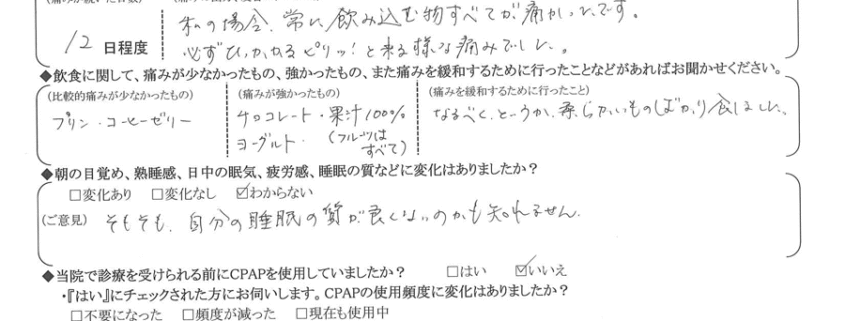 12 日程度
私の場合、常に飲み込む物すべてが痛かったです。
必ずひっかかるピリッ!と来る様な痛みでした。
◆飲食に関して、痛みが少なかったもの、強かったもの、また痛みを緩和するために行ったことなどがあればお聞かせください。
(比較的痛みが少なかったもの)
プリン・コーヒーゼリー
(痛みが強かったもの)
チョコレート・果汁100%
ヨーグルト・(フルーツは
すべて)
(痛みを緩和するために行ったこと)
なるべく、というか、柔らかいものばかり食しました。
◆朝の目覚め、熟睡感、日中の眠気、疲労感、睡眠の質などに変化はありましたか?
□変化あり □変化なし ☑わからない
(ご意見) そもそも、自分の睡眠の質が良くないのかも知れません。
◆当院で診療を受けられる前にCPAPを使用していましたか? □はい ☑いいえ
・『はい』にチェックされた方にお伺いします。CPAPの使用頻度に変化はありましたか?
□不要になった □頻度が減った □現在も使用中